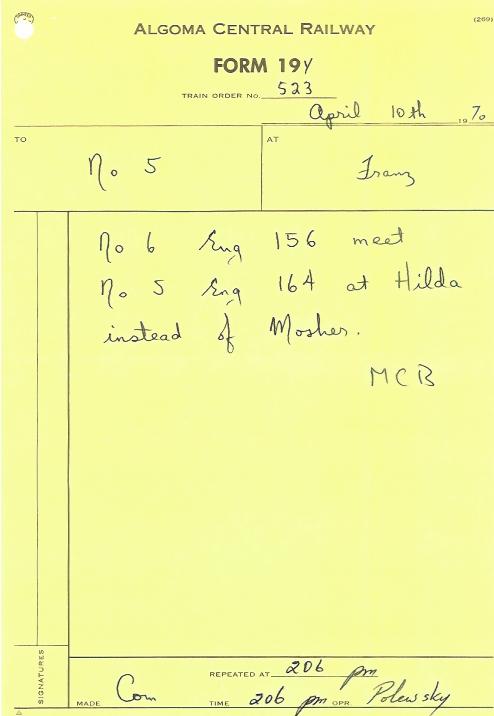 (269)
ALGOMA CENTRAL RAILWAY
FORM 19Y
TRAIN ORDER No. 523
April 10th 1970
TO No 5 AT Franz
No 6 Eng 156 meet
No 5 Eng 164 at Hilda
instead of Mosher.
MCB
SIGNATURES
REPEATED AT 206 pm
MADE Com TIME 206 pm OPR Polewsky